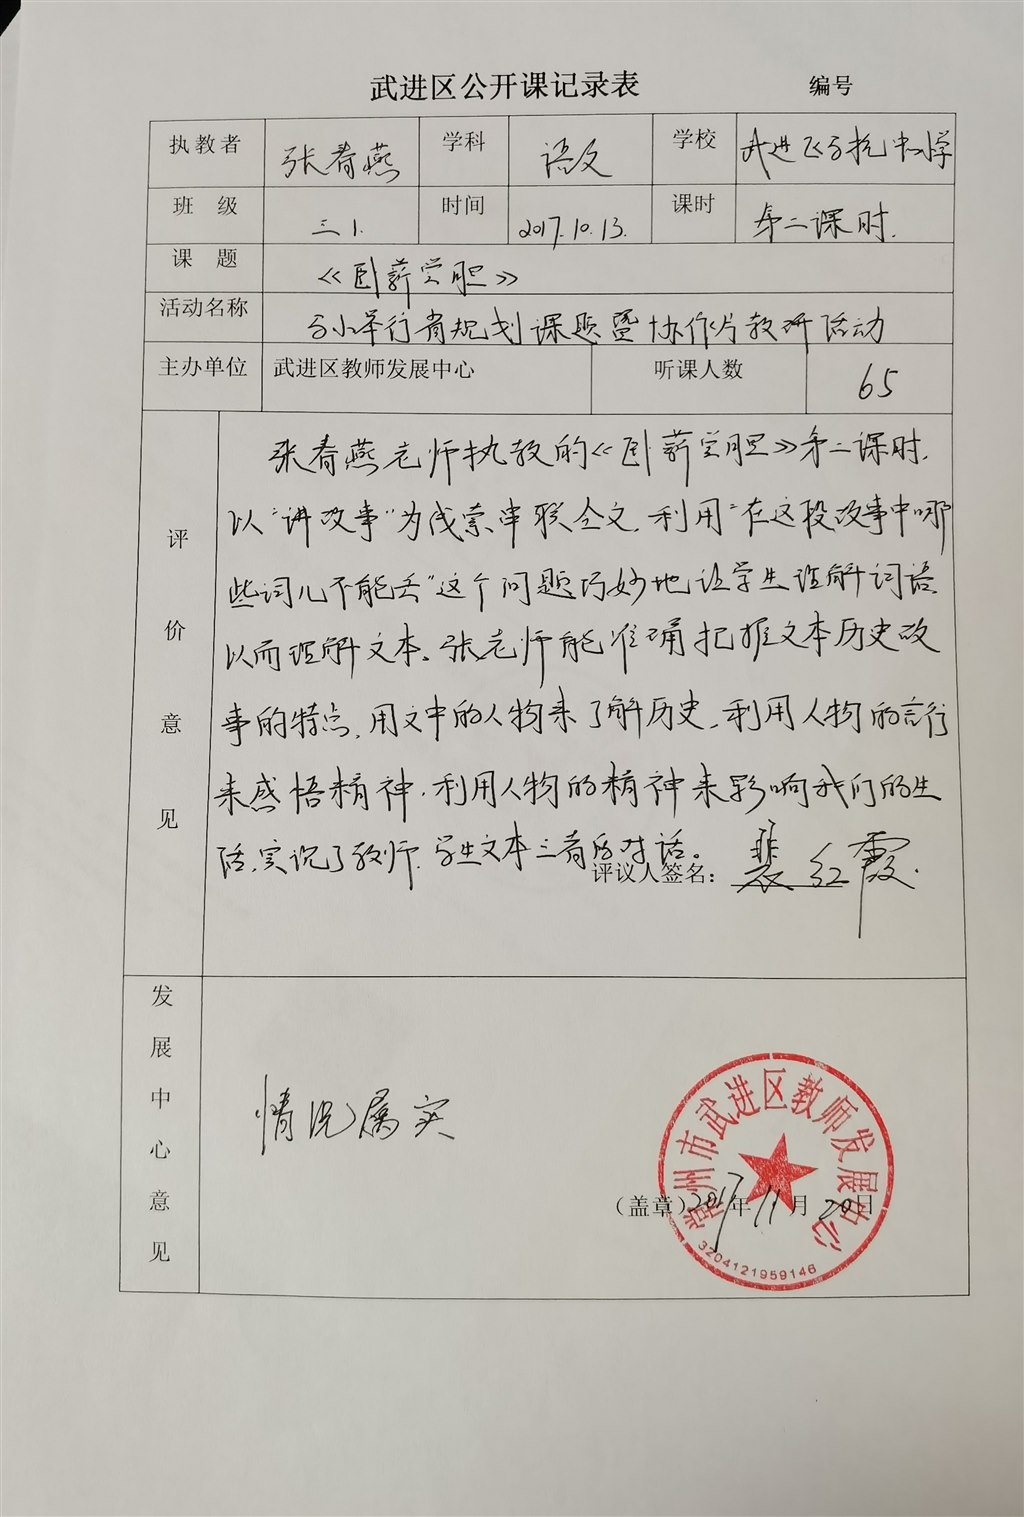 武进区公开课记录表 编号
执教者 张春燕 学科 语文 学校 武进 中心小学
班 级 三1. 时间 2017.10.13. 课时 第二课时.
课 题 《卧薪尝胆》
活动名称 举行省规划课题暨协作片教研活动
主办单位 武进区教师发展中心 听课人数 65
评价意见
张春燕老师执教的《卧薪尝胆》第二课时,
以“讲故事”为线索串联全文,利用“在这段故事中哪
些词儿不能丢”这个问题巧妙地让学生理解词语
从而理解文本。张老师能准确把握文本历史故
事的特点,用文中的人物来了解历史,利用人物的言行
来感悟精神,利用人物的精神来影响我们的生
活,实现了教师、学生文本三者的对话。
评议人签名: 裴红霞.
发展中心意见
情况属实
常州市武进区教师发展中心
(盖章)2017年11月20日
3204121959146